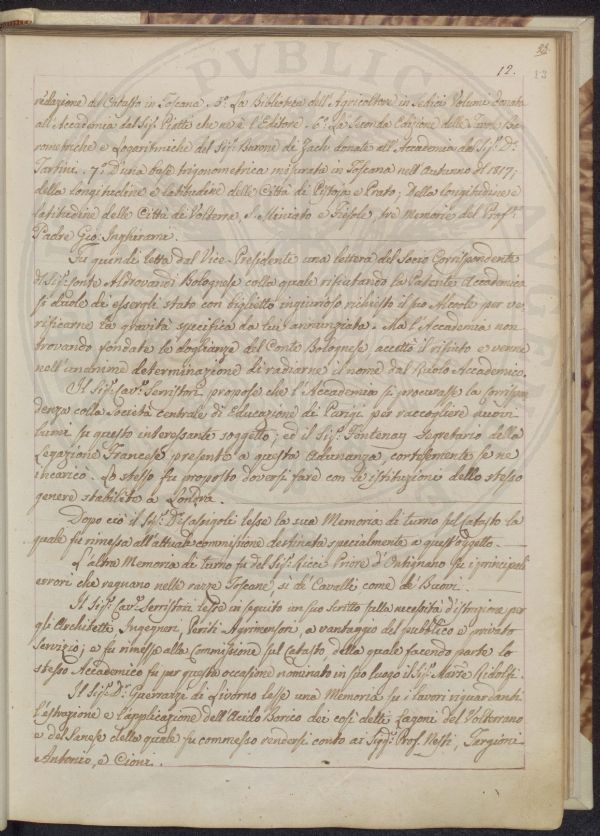 23
12.
13
redazione del Catasto in Toscana. 5.° La Biblioteca dell'Agricoltore in sedici Volumi donata
all'Accademia dal Sig. Piatti che ne è l'Editore. 6.° La Seconda Edizione delle Tavole Ba
rometriche e Logaritmiche del Sig. Barone de Zach donate all'Accademia dal Sig. D.r
Tartini. 7.° D'una base trigonometrica misurata in Toscana nell'Autunno del 1817;
della longitudine e latitudine delle Città di Pistoja e Prato; Della longitudine e
latitudine delle Città di Volterra, S. Miniato e Fiesole tre memorie del Prof.
Padre Gio: Inghirami.
Fu quindi letta dal Vice-Presidente una lettera del Socio Corrispondente
il Sig. Conte Aldrovandi Bolognese colla quale rifiutando la Patente Accademica
si duole di essergli stato con biglietto ingiurioso richiesto il suo Alcoole per ve
rificarne la gravità specifica da lui annunziata. Ma l'Accademia non
trovando fondate le doglianze del Conte Bolognese accettò il rifiuto e venne
nell'unanime determinazione di radiarne il nome dal Ruolo Accademico.
Il Sig. Cav. Serristori propose che l'Accademia si procurasse la corrispon
denza colla Società centrale di Educazione di Parigi per raccogliere nuovi
lumi su questo interessante soggetto; ed il Sig. Fontenay Segretario della
Legazione Francese presente a questa Adunanza cortesemente se ne
incaricò. Lo stesso fu proposto doversi fare con le istituzioni dello stesso
genere stabilite a Londra.
Dopo ciò il Sig. Desasigoli lesse la sua Memoria di turno sul catasto la
quale fu rimessa all'attuale commissione destinata specialmente a quest'oggetto.
L'altra Memoria di turno fu del Sig. Ricci Priore d'Ortignano su i principali
errori che regnano nelle razze Toscane, sì de' Cavalli come de' Buovi.
Il Sig. Cav. Serristori lesse in seguito un suo Scritto sulla necessità d'istruzione per
gli Architetti, Ingegneri, Periti Agrimensori, a vantaggio del pubblico e privato
servizio; e fu rimessa alla Commissione sul Catasto della quale facendo parte lo
stesso Accademico fu per questa occasione nominato in suo luogo il Sig. March. Ridolfi.
Il Sig. D. Guerrazzi di Livorno lesse una Memoria su i lavori riguardanti
l'estrazione e l'applicazione dell'Acido Borico dei così detti Lagoni del Volterrano
e del Sanese della quale fu commesso rendersi conto ai Sigg. Prof. Nesti, Targioni
Antonio, e Cioni.